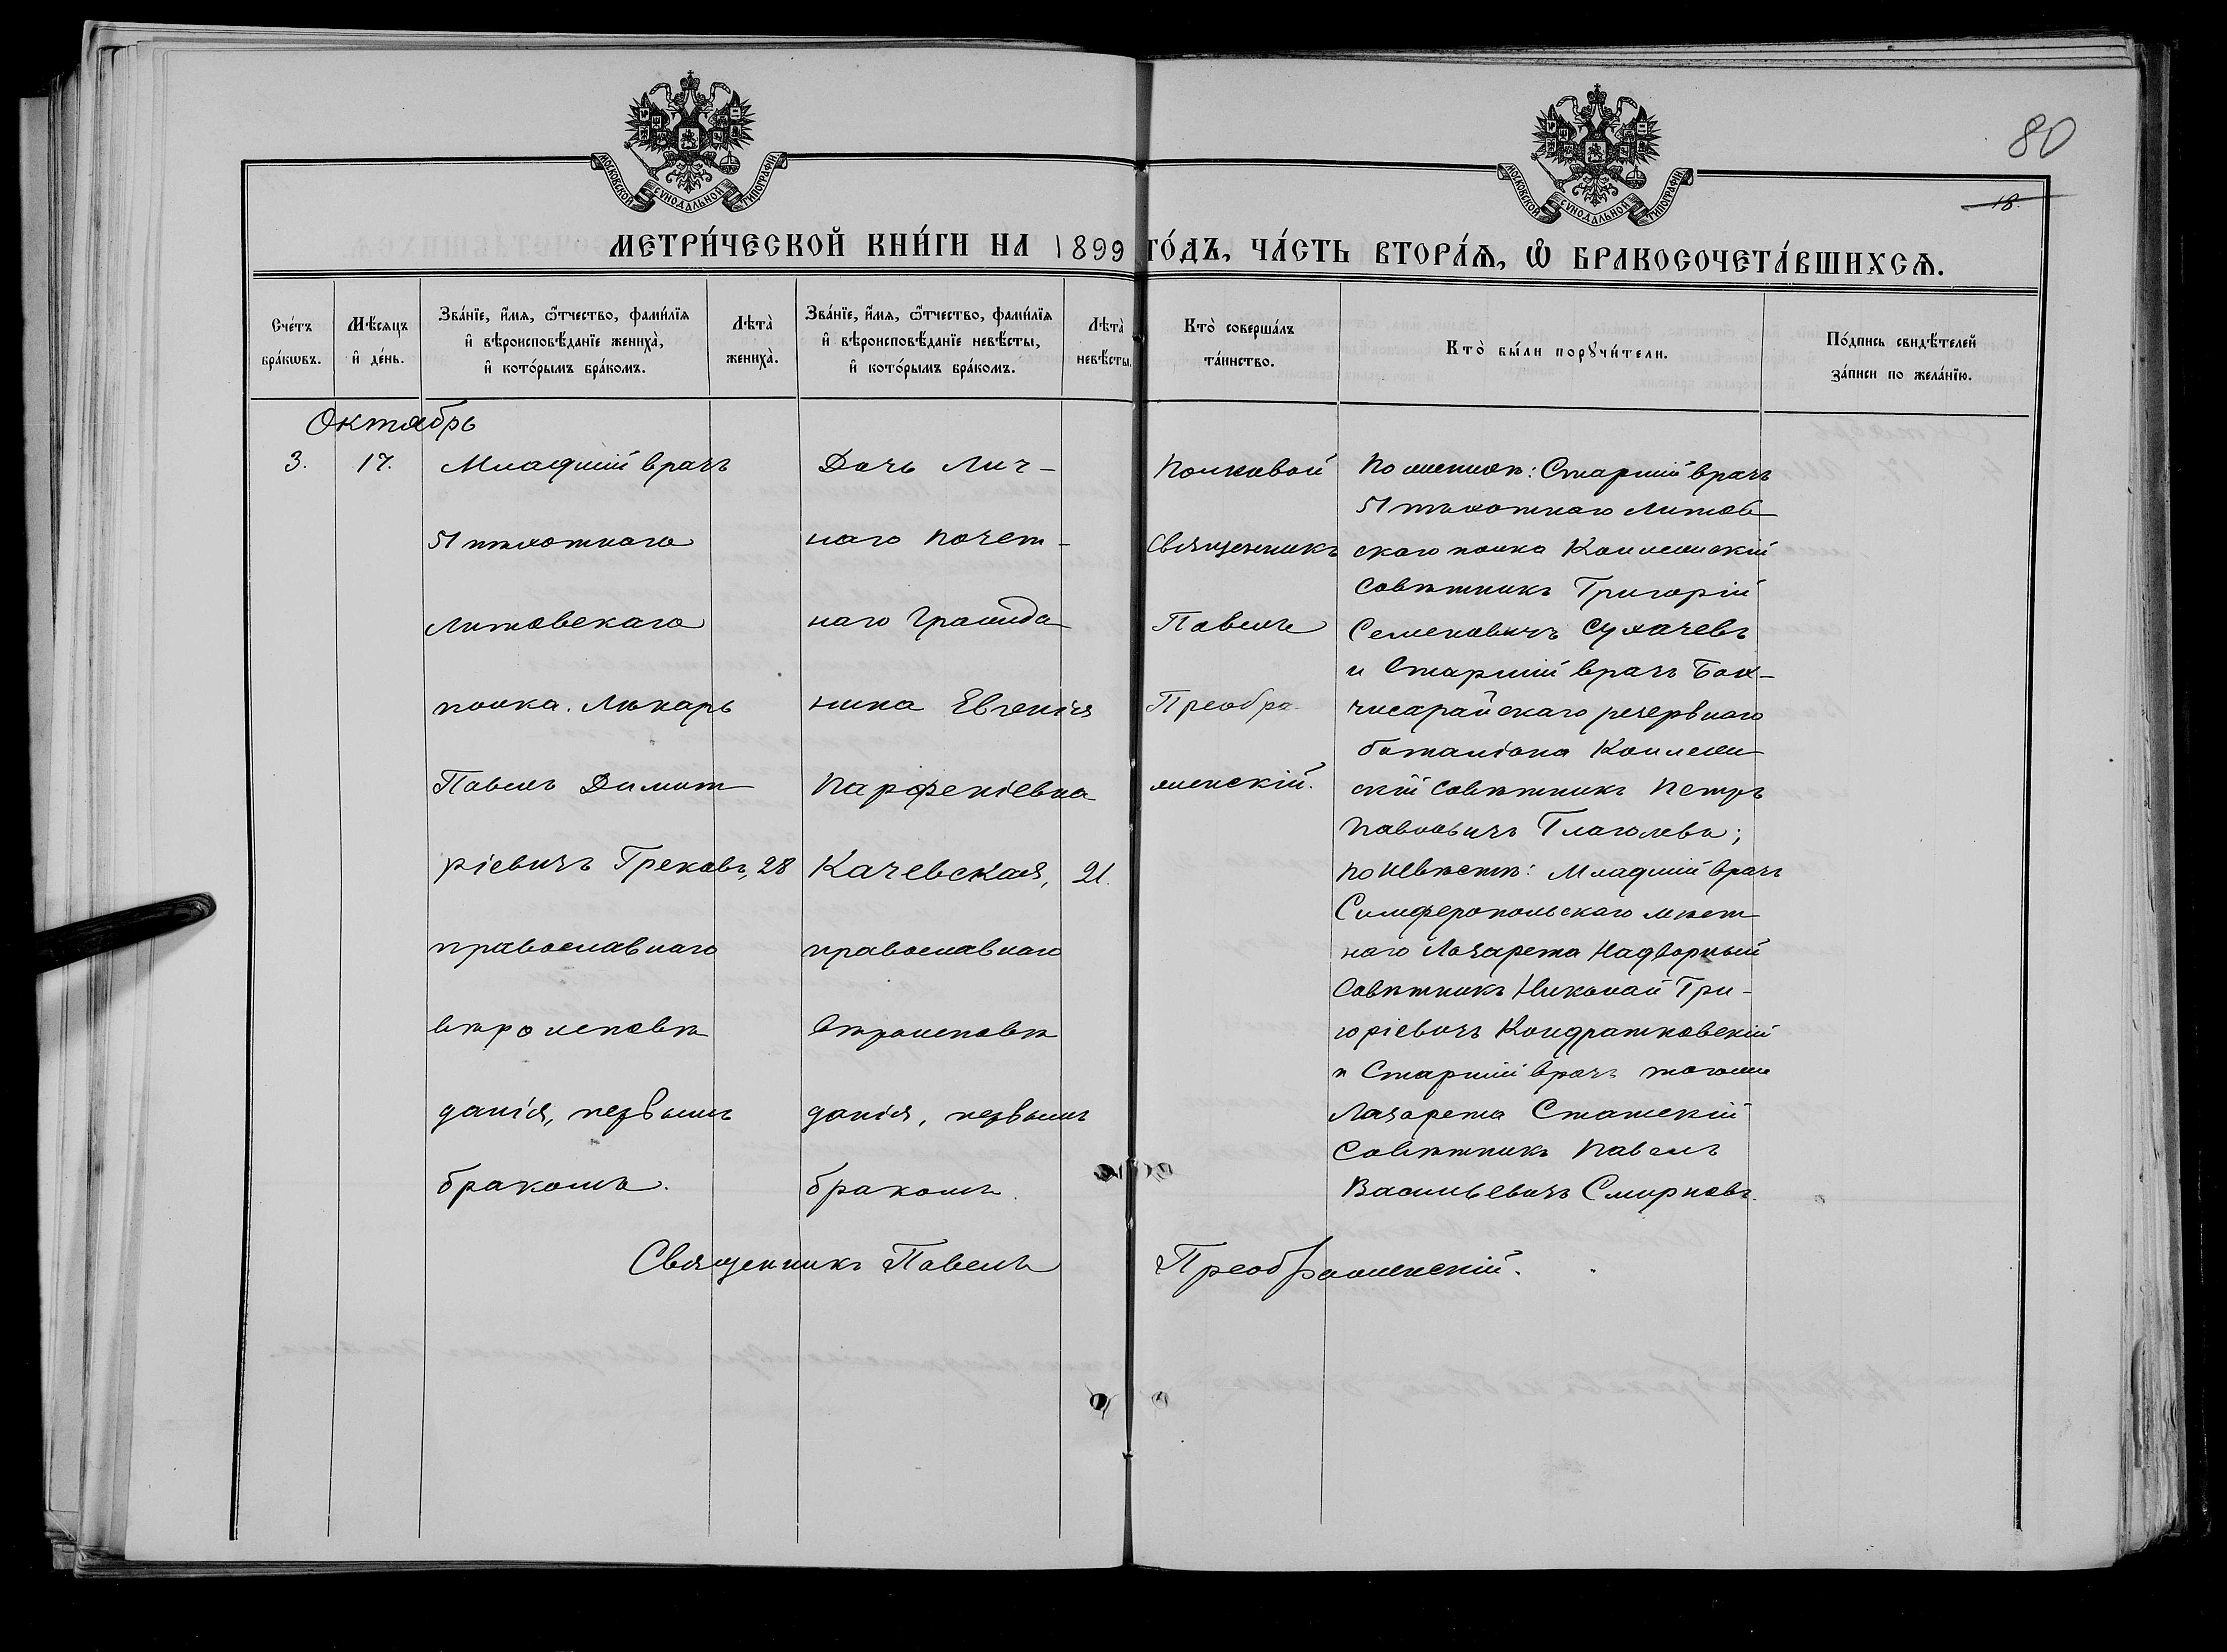 80
18.
МОСКОВСКОЙ СѴНОДАЛЬНОЙ ТИПОГРАФІИ
МОСКОВСКОЙ СѴНОДАЛЬНОЙ ТИПОГРАФІИ
МЕТРИ́ЧЕСКОЙ КНИ́ГИ НА 1899 ГО́ДЪ, ЧА́СТЬ ВТОРА́Ѧ, Ѽ БРАКОСОЧЕТА́ВШИХСѦ.
Сче́тъ
бра́кѡвъ.
Мѣ́сѧцъ
и҆ де́нь.
Зва́нїе, и҆́мѧ, ѻ҆́тчество, фами́лїѧ
и҆ вѣроисповѣ́данїе жениха̀,
и҆ кото́рымъ бра́комъ.
Лѣта̀
жениха̀.
Зва́нїе, и҆́мѧ, ѻ҆́тчество, фами́лїѧ
и҆ вѣроисповѣ́данїе невѣ́сты,
и҆ кото́рымъ бра́комъ.
Лѣта̀
невѣ́сты.
Кто̀ соверша́лъ
та́инство.
Кто̀ бы́ли порꙋчи́тели.
По́дпись свидѣ́телей
за́писи по жела́нїю.
Октябрь
3.
17.
Младшій врачъ
51 пѣхотнаго
Литовскаго
полка. Лѣкарь
Павелъ Димит
ріевичъ Грековъ,
православнаго
вѣроисповѣ
данія, первымъ
бракомъ.
28
Дочь Лич-
наго почет-
наго Гражда
нина Евгенія
Парфеніевна
Качевская,
православнаго
вѣроисповѣ
данія, первымъ
бракомъ.
21.
Полковой
Священникъ
Павелъ
Преобра-
женскій.
По женихѣ: Старшій врачъ
51 пѣхотнаго Литов
скаго полка Коллежскій
Совѣтникъ Григорій
Семеновичъ Сухачевъ
и Старшій врачъ Бах-
чисарайскаго резервнаго
баталіона Коллеж
скій Совѣтникъ Петръ
Павловичъ Глаголевъ;
По невѣстѣ: Младшій врачъ
Симферопольскаго мѣст
наго Лазарета Надворный
Совѣтникъ Николай Гри-
горіевичъ Кондратковскій
и Старшій врачъ тогоже
Лазарета Статскій
Совѣтникъ Павелъ
Васильевичъ Смирновъ.
Священникъ Павелъ Преображенскій.